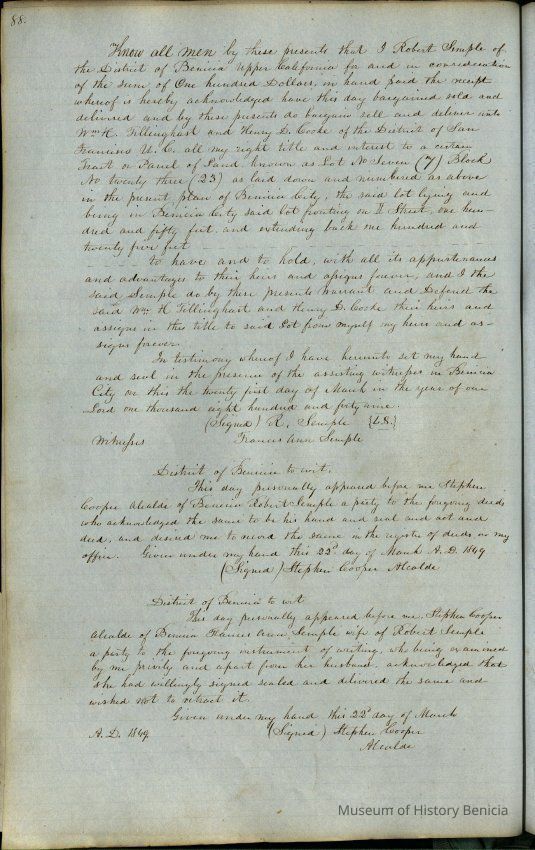 88.
Know all men by these presents that I Robert Semple of
the District of Benicia Upper California for and in consideration
of the sum of One hundred Dollars, in hand paid the receipt
whereof is hereby acknowledged have this day bargained sold and
delivered and by these presents do bargain sell and deliver unto
Wm H. Tillinghast and Henry D. Cooke of the District of San
Francisco U. C. all my right title and interest to a certain
Tract or Parcel of Land known as Lot No Seven (7) Block
No twenty three (23) as laid down and numbered as above
in the present plan of Benicia City, the said lot lying and
being in Benicia City said lot fronting on Street, one hun-
dred and fifty feet and extending back one hundred and
twenty five feet
to have and to hold, with all its appurtenances
and advantages to their heirs and assigns forever, and I the
said Semple do by these presents warrant and Defend the
said Wm H Tillinghast and Henry D. Cooke their heirs and
assigns in the title to said Lot from myself my heirs and as-
signs forever.
In testimony whereof I have hereunto set my hand
and seal in the presence of the assisting witnesses in Benicia
City on this the twenty first day of March in the year of our
Lord one thousand eight hundred and forty nine.
(Signed) R. Semple {L.S.}
Witnesses Frances Ann Semple
District of Benicia to wit.
This day personally appeared before me Stephen
Cooper Alcalde of Benicia Robert Semple a party to the foregoing deeds
who acknowledged the same to be his hand and seal and act and
deed, and desired me to record the same in the register of deeds in my
office. Given under my hand this 22d day of March A. D. 1849
(Signed) Stephen Cooper Alcalde
District of Benicia to wit
This day personally appeared before me, Stephen Cooper
Alcalde of Benicia Frances Ann Semple wife of Robert Semple
a party to the foregoing instrument of writing, who being examined
by me privily and apart from her husband, acknowledged that
she had willingly signed sealed and delivered the same and
wished not to retract it.
Given under my hand this 22d day of March
A. D. 1849 (Signed) Stephen Cooper
Alcalde
Museum of History Benicia